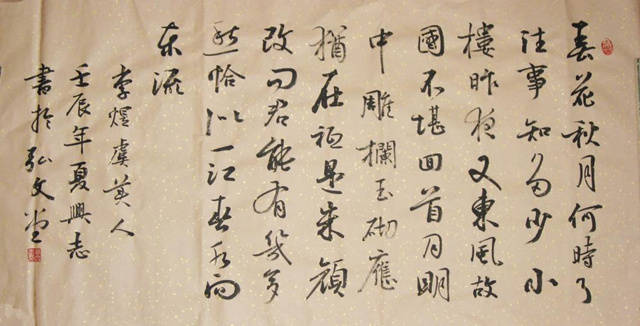 春花秋月何時了
往事知多少小
樓昨夜又東風故
國不堪回首月明
中雕欄玉砌應
猶在祇是朱顏
改问君能有幾多
愁恰似一江春水向
东流
李煜虞美人
壬辰年夏興志
書於弘文堂